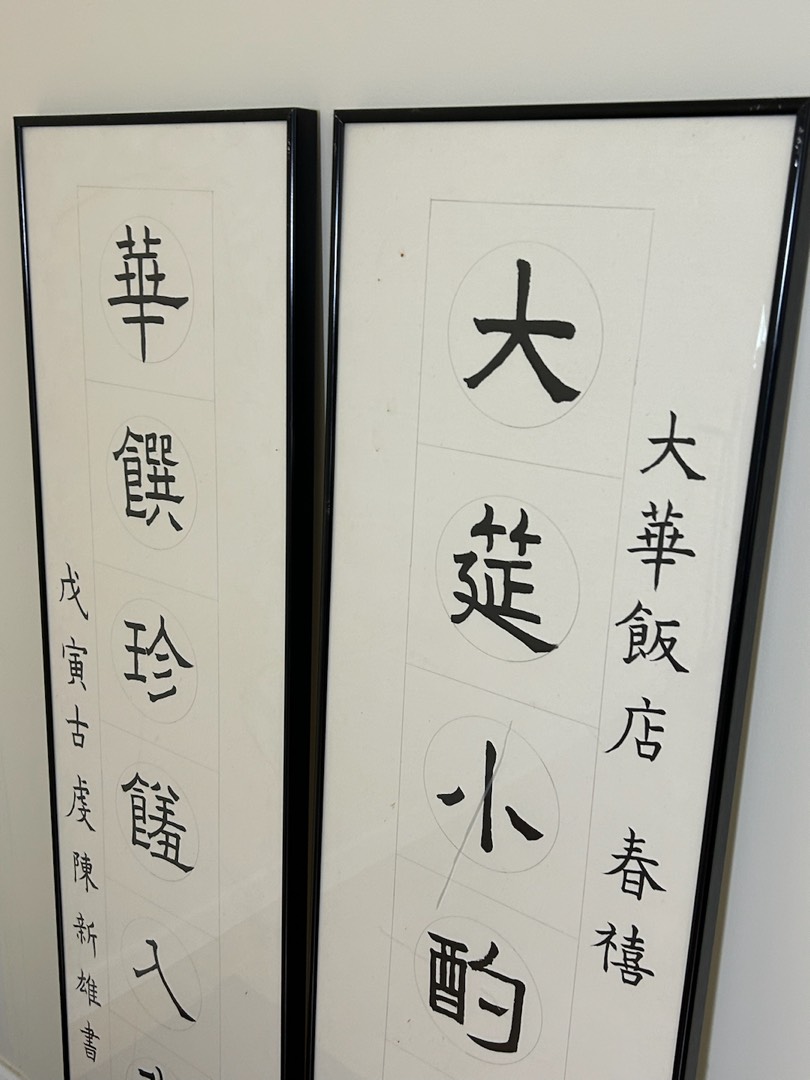 大華飯店 春禧
大筵小酌
華饌珍饈入
戊寅古虔陳新雄書